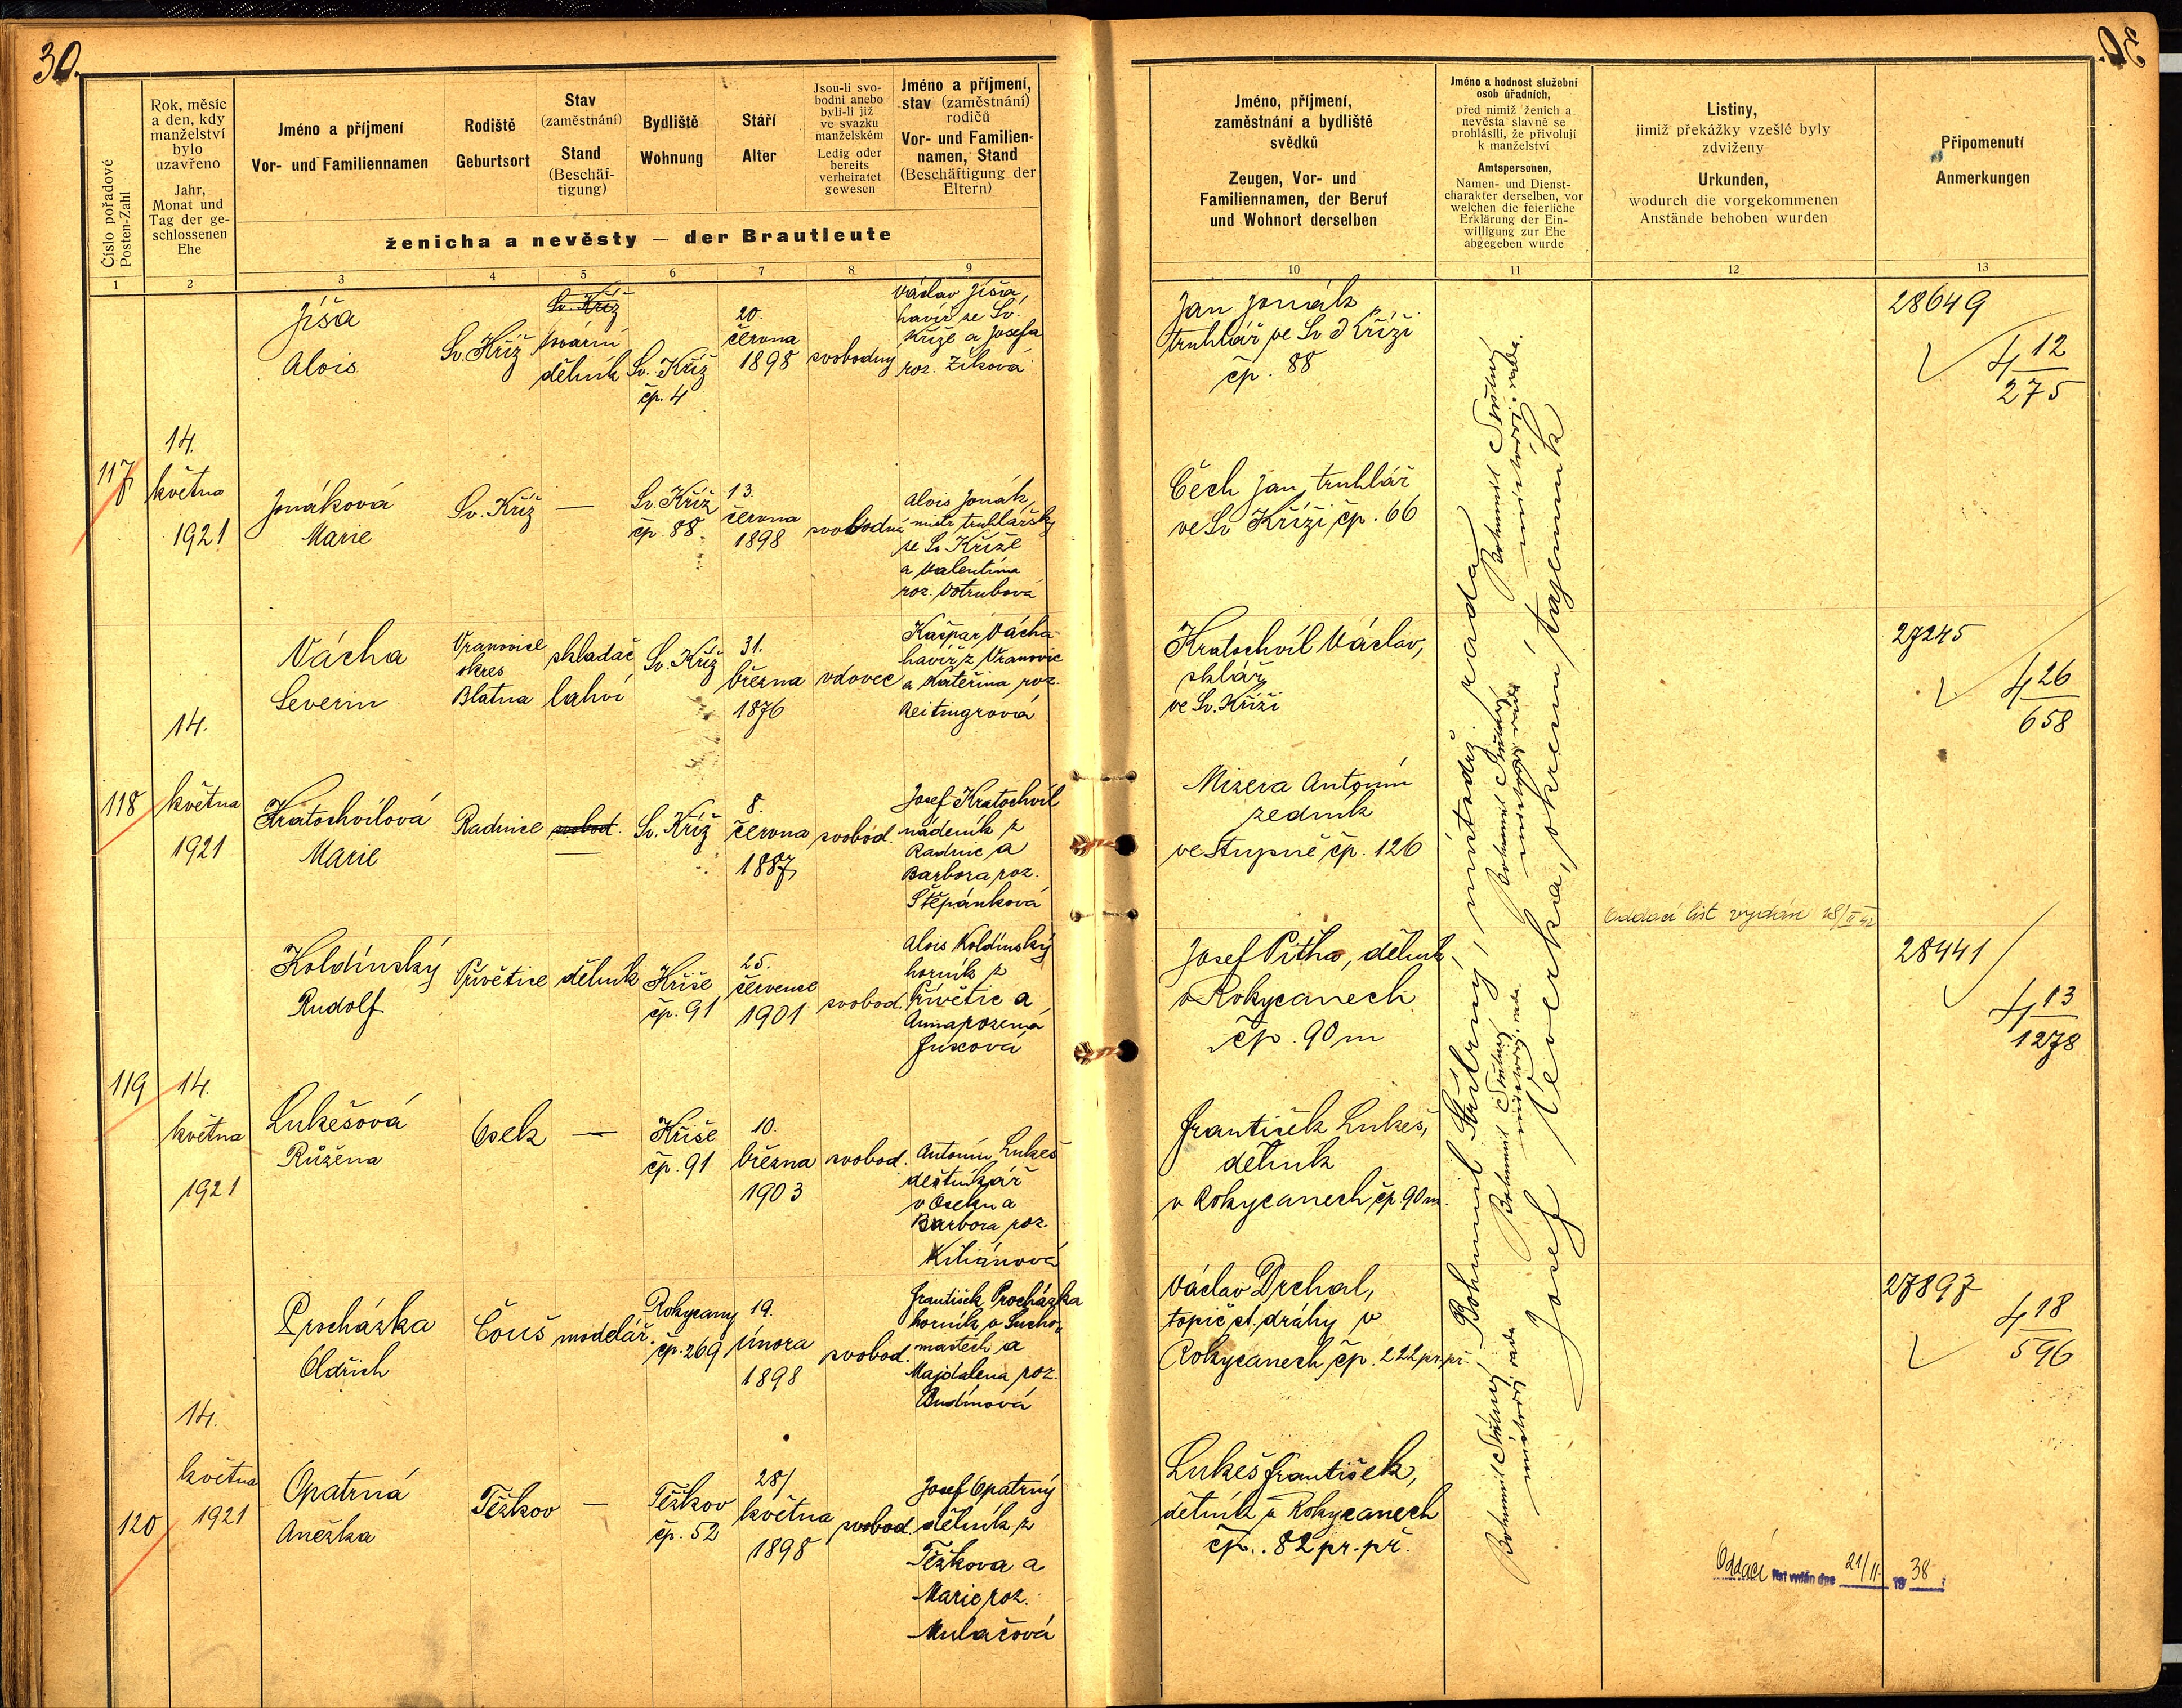 30.
30.
Číslo pořadové
Posten-Zahl
Rok, měsíc
a den, kdy
manželství
bylo
uzavřeno
Jahr,
Monat und
Tag der ge-
schlossenen
Ehe
Jméno a příjmení
Vor- und Familiennamen
Rodiště
Geburtsort
Stav
(zaměstnání)
Stand
(Beschäf-
tigung)
Bydliště
Wohnung
Stáří
Alter
Jsou-li svo-
bodni anebo
byli-li již
ve svazku
manželském
Ledig oder
bereits
verheiratet
gewesen
Jméno a příjmení,
stav (zaměstnání)
rodičů
Vor- und Familien-
namen, Stand
(Beschäftigung der
Eltern)
ženicha a nevěsty — der Brautleute
Jméno, příjmení,
zaměstnání a bydliště
svědků
Zeugen, Vor- und
Familiennamen, der Beruf
und Wohnort derselben
Jméno a hodnost služební
osob úřadních,
před nimiž ženich a
nevěsta slavně se
prohlásili, že přivolují
k manželství
Amtspersonen,
Namen- und Dienst-
charakter derselben, vor
welchen die feierliche
Erklärung der Ein-
willigung zur Ehe
abgegeben wurde
Listiny,
jimiž překážky vzešlé byly
zdviženy
Urkunden,
wodurch die vorgekommenen
Anstände behoben wurden
Připomenutí
Anmerkungen
1 2 3 4 5 6 7 8 9 10 11 12 13
117
14.
května
1921
Jíša
Alois
Sv. Kříž
Sv. Kříž
tovární
dělník
Sv. Kříž
čp. 4
20.
června
1898
svobodny
Václav Jíša,
havíř ze Sv.
Kříže a Josefa
roz. Žiková
Jan Jonák
truhlář ve Sv Kříži
čp. 88
28649
4 12
275
Jonáková
Marie
Sv. Kříž
—
Sv. Kříž
čp. 88.
13.
června
1898
svobodná
Alois Jonák,
mistr truhlářský
ze Sv Kříže
a Valentina
roz. Votrubová
Čech Jan, truhlář
ve Sv Kříži čp. 66
118
14.
května
1921
Vácha
Severin
Vranovice
okres
Blatna
skladač
lahví
Sv. Kříž
31.
března
1876
vdovec
Kašpar Vácha
havíř z Vranovic
a Kateřina roz.
Reitingrová
Kratochvíl Václav,
sklář
ve Sv. Kříži
27245
4 26
658
Kratochvílová
Marie
Radnice
svobod.
—
Sv. Kříž
8.
června
1887
svobod.
Josef Kratochvíl
nádeník z
Radnic a
Barbora roz.
Štěpánková
Mizera Antonín
zedník
ve Stupně čp. 126
Oddací list vydán 18/II 42
119
14.
května
1921
Koldínský
Rudolf
Přívětice
dělník
Kříše
čp. 91
25.
července
1901
svobod.
Alois Koldínský
horník z
Přívětic a
Anna rozená
Fuxová
Josef Pitha, dělník
v Rokycanech
čp. 90 m
28441
4 13
1278
Lukešová
Růžena
Osek
—
Kříše
čp. 91
10.
března
1903
svobod.
Antonín Lukeš
deštníkář
v Oseku a
Barbora roz.
Kiliánová
František Lukeš,
dělník
v Rokycanech čp. 90 m.
120
14.
května
1921
Procházka
Oldřich
Couš
modelář.
Rokycany
čp. 269
19.
února
1898
svobod.
František Procházka
horník v Sucho-
mastech a
Majdalena roz.
Budínová
Václav Drchal,
topič st. dráhy v
Rokycanech čp. 222 pr. př.
27897
4 18
596
Opatrná
Anežka
Těškov
—
Těškov
čp. 52
28/
května
1898
svobod.
Josef Opatrný
dělník z
Těškova a
Marie roz.
Mulačová
Lukeš František,
dělník v Rokycanech
čp. 82 pr. př.
Oddací list vydán dne 21/II. 19 38.
Bohumil Stříbrný, místodrž. rada
Josef Veverka, okresní tajemník